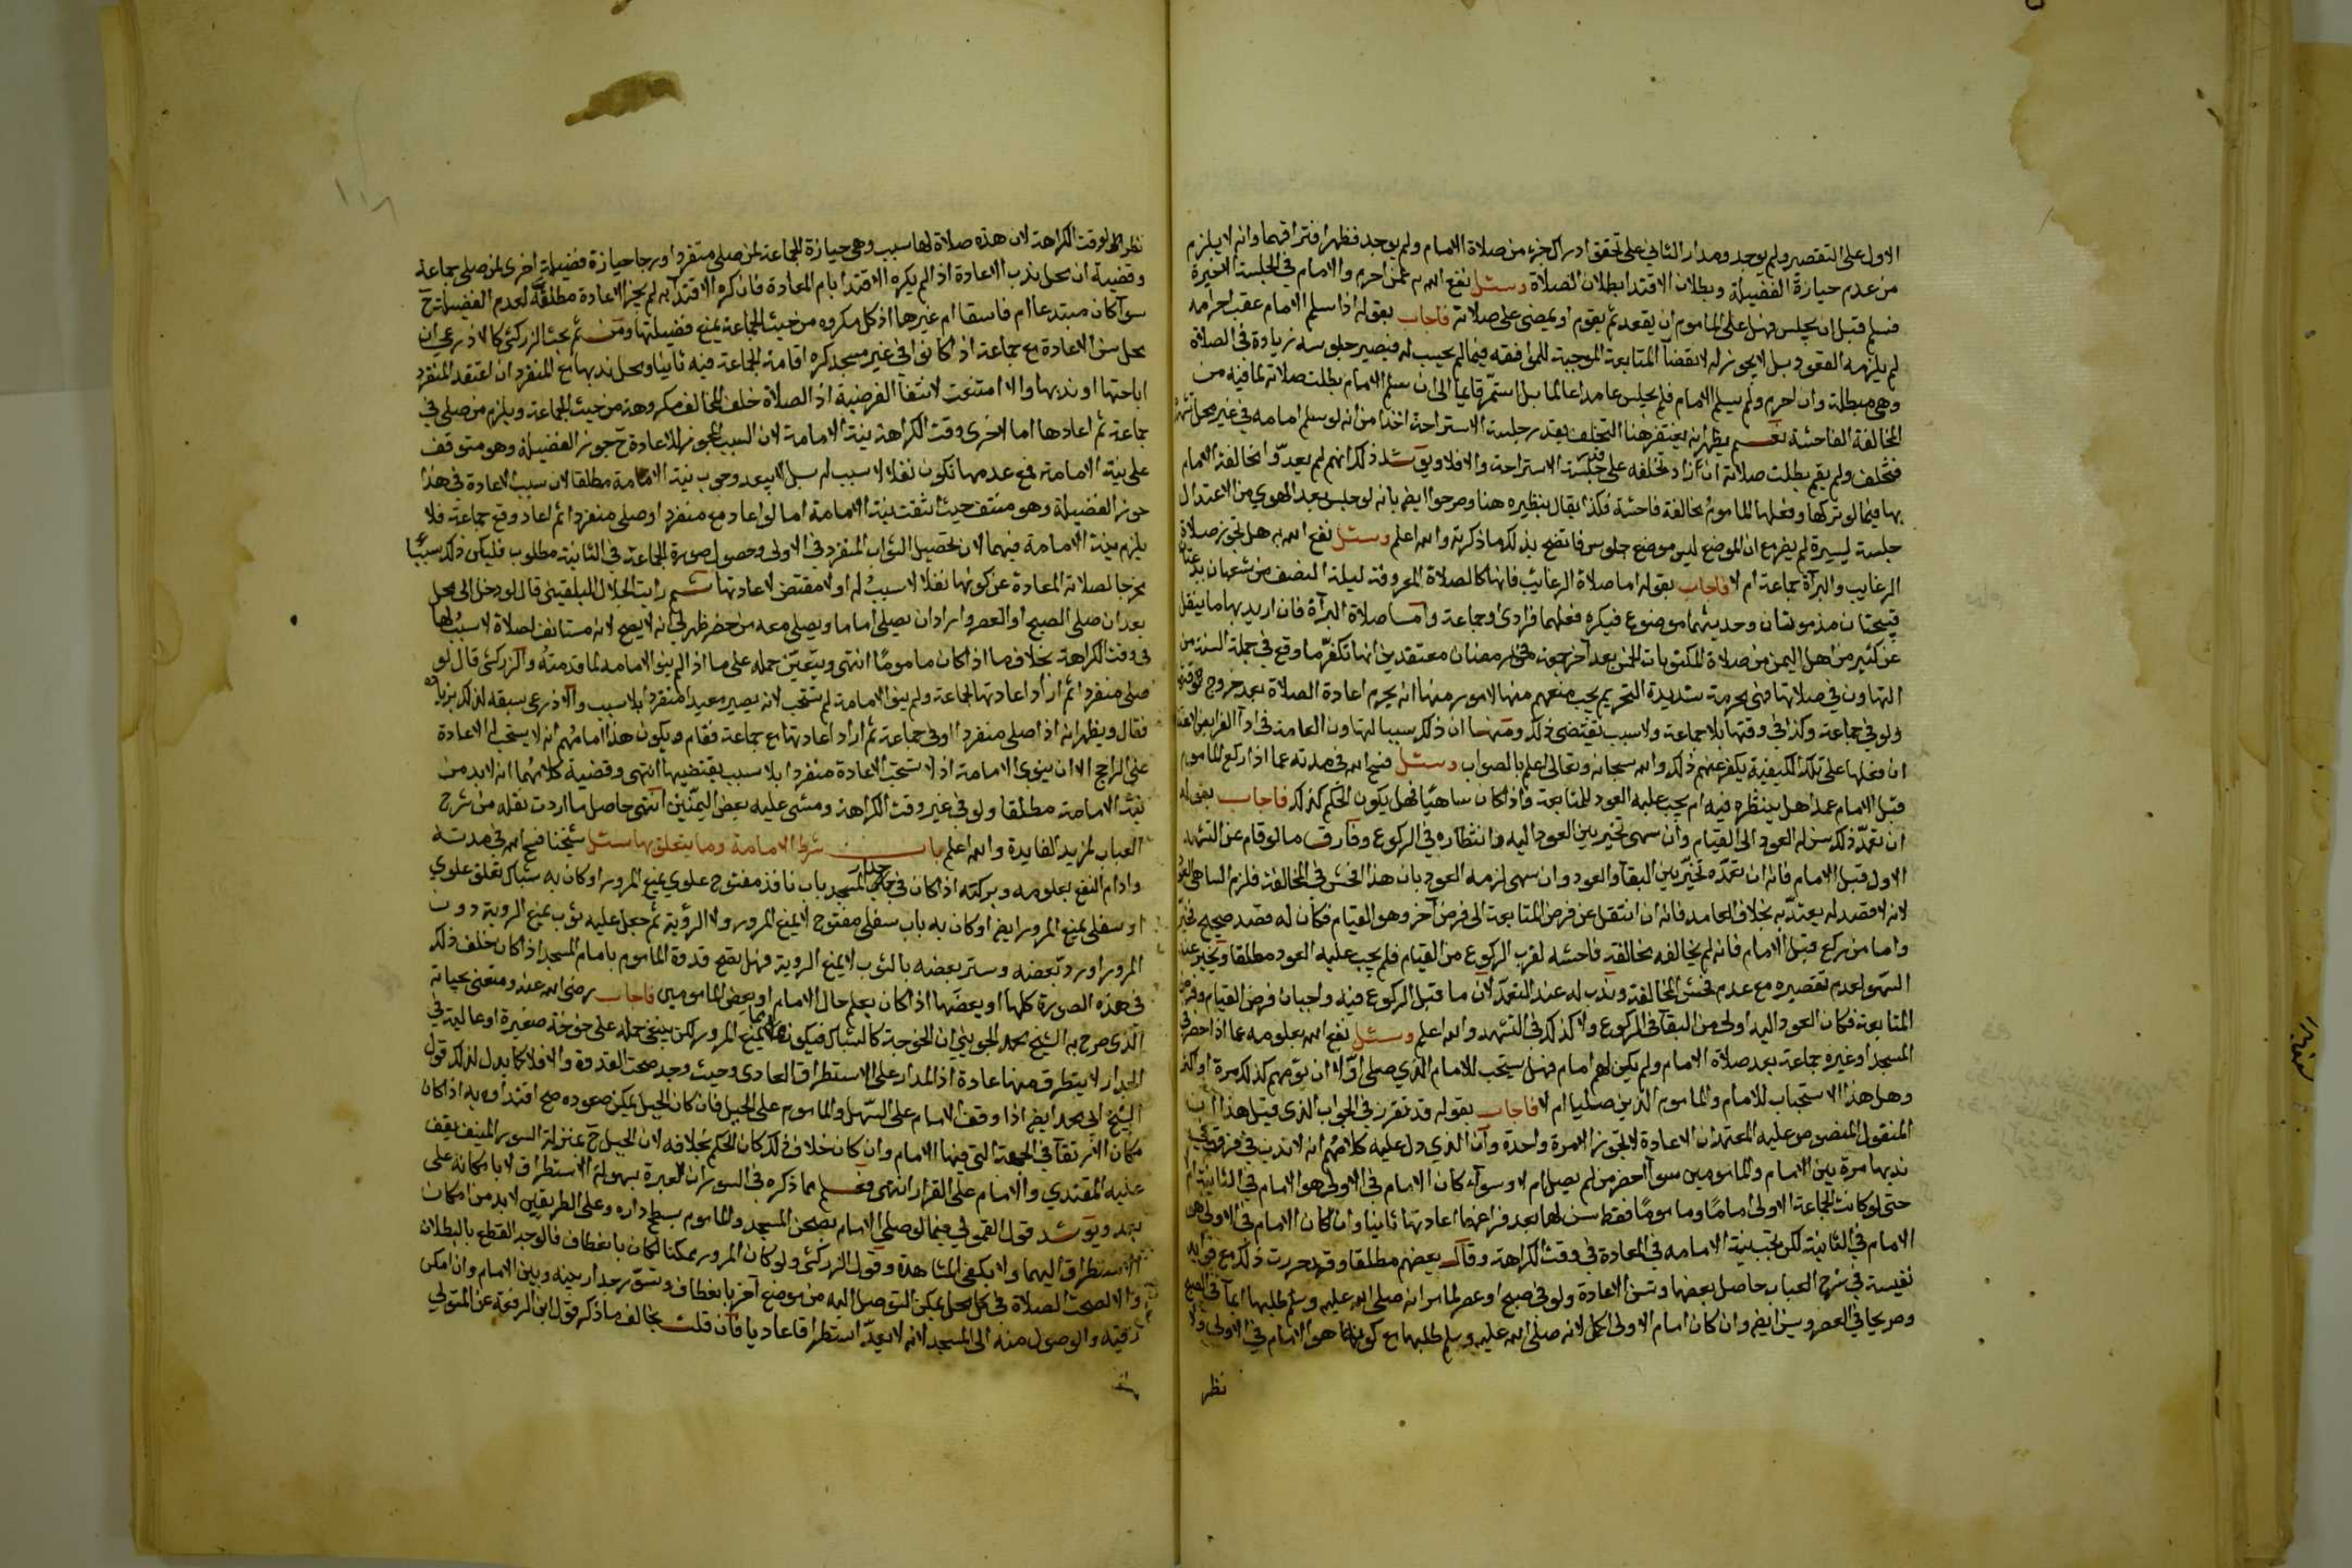 الاول على التقصير ولم يوجد ومدار الثاني على تحقق ادراك جزء من صلاة الامام ولم يوجد فظهر افتراقهما وانه لا يلزم
من عدم حيازة الفضيلة وبطلان الاقتدا بطلان الصلاة وسئل نفع الله به عمن احرم والامام في الجلسة الاخيرة
فسلم قبل ان يجلس فهل على الماموم ان يقعد ثم يقوم او يمضي على صلاته فاجاب بقوله اذا سلم الامام عقب احرامه
لم يلزمه القعود بل لا يجوز له لانقضآ المتابعة الموجبة للموافقة فيما لم يحسب له فيصير جلوسه زيادة في الصلاة
وهي مبطلة وان احرم ولم يسلم الامام فلم يجلس عامدا عالما بل استمر قايما الى ان سلم الامام بطلت صلاته لما فيه من
المخالفة الفاحشة نعم يظهر انه يغتفر هنا التخلف بقدر جلسة الاستراحة اخذا من انه لو سلم امامه في غير محل تشهده
فتخلف ولم يقم بطلت صلاته ان زاد تخلفه على قدر جلسة الاستراحة والا فلا ويؤيد ذلك انهم لم يعدوا مخالفة الامام
بها فيما لو تركها وفعلها الماموم مخالفة فاحشة فكذا يقال بنظيره هنا وصرحوا ايضا بانه لو جلس بعد الهوي من الاعتدال
جلسة يسيرة لم يضر مع ان الموضع ليس موضع جلوس فاتضح بذلك ما ذكرته والله اعلم وسئل نفع الله به هل تجوز صلاة
الرغايب والبرآة جماعة ام لا فاجاب بقوله اما صلاة الرغايب فانها كالصلاة المعروفة ليلة النصف من شعبان بدعتان
قبيحتان مذمومتان وحديثهما موضوع فيكره فعلهما فرادى وجماعة واما صلاة البرآة فان اريد بها ما ينقل
عن كثير من اهل اليمن من صلاة المكتوبات الخمس بعد آخر جمعة في رمضان معتقدين انها تكفر ما وقع في جملة السنة من
التهاون في صلاتها فهي محرمة شديدة التحريم يجب منعهم منها لامور منها انه يحرم اعادة الصلاة بعد خروج وقتها
ولو في جماعة وكذا في وقتها بلا جماعة ولا سبب يقتضي ذلك ومنها ان ذلك سببا لتهاون العامة في ادآ الفرايض لاعتقادهم
ان فعلها على تلك الكيفية يكفر عنهم ذلك والله سبحانه وتعالى اعلم بالصواب وسئل فسح الله في مدته عما اذا ركع الماموم
قبل الامام عمدا هل ينتظره فيه ام يجب عليه العود للمتابعة واذا كان ساهيا فهل يكون الحكم كذلك فاجاب بقوله
ان تعمد ذلك سن له العود الى القيام وان سهى تخير بين العود اليه وانتظاره في الركوع وفارق ما لو قام عن التشهد
الاول قبل الامام فانه ان تعمده تخير بين البقآ والعود وان سهى لزمه العود بان هذا افحش في المخالفة فلزم الساهي العود
لانه لا قصد له يعتد به بخلاف العامد فانه ان انتقل عن فرض المتابعة الى فرض آخر وهو القيام فكان له قصد صحيح تخير
واما من ركع قبل الامام فانه لم يخالفه مخالفة فاحشه لقرب الركوع من القيام فلم يجب عليه العود مطلقا وتخير عند
السهو لعدم تقصيره مع عدم فحش المخالفة وندب له عند التعمد لان ما قبل الركوع فيه واجبان فرض القيام وفرض
المتابعة فكان العود اليه اولى من البقآ في الركوع ولا كذلك في التشهد والله اعلم وسئل نفع الله بعلومه عما اذا حضر في
المسجد او غيره جماعة بعد صلاة الامام ولم يكن لهم امام فهل يستحب للامام الذي صلى اولا ان يؤمهم كذلك مرة او اكثر
وهل هذا الاستحباب للامام والماموم الذين صليا ام لا فاجاب بقوله قد تقرر في الجواب الذي قبل هذا ان
المنقول المنصوص عليه المعتمد ان الاعادة لا تجوز الا مرة واحدة وان الذي دل عليه كلامهم انه لا ندب في فرق في
ندبها مرة بين الامام والمامومين سوآ حضر من لم يصل ام لا وسوآء كان الامام في الاولى هو الامام في الثانية ام لا
حتى لو كانت الجماعة الاولى اماما وماموما فقط سن لهما بعد فراغهما اعادتها ثانيا وان كان الامام في الاولى هو
الامام في الثانية لكن تجب نية الامامه في المعادة في وقت الكراهة وقال بعضهم مطلقا وقد حررت ذلك مع فوايد
نفيسة في شرح العباب حاصل بعضها وتسن الاعادة ولو في صبح او عصر لما مر انه صلى الله عليه وسلم طلبها ايمآ في الصبح
وصريحا في العصر ويسن ايضا وان كان امام الاولى اكمل لانه صلى الله عليه وسلم طلبها مع كونه هو الامام في الاولى ولا
نظر
نظر الى وقت الكراهة لان هذه صلاة لها سبب وهي حيازة الجماعة لمن صلى منفردا ورجا حيازة فضيلة اخرى لمن صلى جماعة
وقضيته ان محل ندب الاعادة اذا لم يكره الاقتدا بام المعادة فان كره الاقتدا به لم يجز الاعادة مطلقا لعدم الفضيلة ح
سوآ كان مبتدعا ام فاسقا ام غيرها اذ كل مكروه من حيث الجماعة يمنع فضيلتها ومن ثم بحث الزركشي كالاذرعي ان
محل سن الاعادة مع جماعة اذا كانوا في غير مسجد كره اقامة الجماعة فيه ثانيا ومحل ندبها مع المنفرد ان اعتقد المنفرد
اباحتها او ندبها والا امتنعت لانتفآ الفرضية اذ الصلاة خلف المخالف مكروهة من حيث الجماعة ويلزم من صلى في
جماعة ثم اعادها اما الاخرى وقت الكراهة نية الامامة لان السبب المجوز للاعادة ح حوز الفضيلة وهو متوقف
على نية الامامة فمع عدمها تكون نفلا لا سبب له بل لا يبعد وجوب نية الامامة مطلقا لان سبب الاعادة في هذا
حوز الفضيلة وهو منتف حيث انتفت نية الامامة اما لو اعاد مع منفرد او صلى منفردا ثم اعاد وقع جماعة فلا
يلزم نية الامامة فيهما لان تحصيل الثواب المنفرد في الاولى وحصول صورة الجماعة في الثانية مطلوب فليكن ذلك سببا
مخرجا لصلاته المعادة عن كونها نفلا لا سبب له او لا مقتض لاعادتها ثم رايت الجلال البلقيني قال لو دخل الى محل
بعد ان صلى الصبح او العصر واراد ان يصلي اماما ويصلي معه من حضر ظهر لي انه لا يصح لانه مستانف لصلاة لا سبب لها
في وقت الكراهة بخلاف ما اذا كان ماموما انتهى ويتعين حمله على ما اذا لم ينو الامامه لما قدمته والزركشي قال لو
صلى منفردا ثم اراد اعادتها لجماعة ولم ينو الامامة لم تستحب لانه يصير معيدا منفردا بلا سبب والاذرعي سبقه لذلك بزيادة
فقال ويظهر انه اذا صلى منفردا او في جماعة ثم اراد اعادتها مع جماعة فقام ويكون هذا امامهم انه لا يستحب له الاعادة
على الراجح الا ان ينوي الامامة اذ لا تستحب الاعادة منفردا بلا سبب يقتضيها انتهى وقضية كلامهما انه لابد من
نية الامامة مطلقا ولو في غير وقت الكراهة ومشى عليه بعض اليمنين انتهى حاصل ما اردت نقله من شرح
العباب لمزيد الفايدة والله اعلم باب شرط الامامة وما يتعلق بها سئل شيخنا فسح الله في مدته
وادام النفع بعلومه وبركته اذا كان في جدار المسجد باب نافذ مفتوح علوي يمنع المرور او كان به شباك بغلق علوي
او سفلي يمنع المرور ايضا او كان به باب سفلي مفتوح لا يمنع المرور ولا الرؤية ثم جعل عليه ثوب يمنع الروية دون
المرور او رد بعضه وستر بعضه بالثوب لا يمنع الروية فهل تصح قدوة الماموم بامام المسجد اذا كان خلف ذلك
في هذه الصورة كلها او بعضها اذا كان يعلم حال الامام او بعض المامومين فاجاب رضي الله عنه ومتعني بحياته
الذي صرح به الشيخ محمد الجويني ان الخوخة كالشباك فيكون مما يمنع المرور لكن ينبغي حمله على خوخة صغيرة او عالية في
الجدار لا يتطرق منها عادة اذ المدار على الاستطراق العادي وحيث وجد صحت القدوة والا فلا كما يدل لذلك قول
الشيخ ابي محمد ايضا اذا وقف الامام على السهل والماموم على الجبل فان كان الجبل يمكن صعوده صح اقتدآوه به اذا كان
مكان الارتقآ في الجهة التي فيها الامام وان كان خلاف ذلك كان الحكم بخلافه لان الجبل ح بمنزلة السور المنيف يقف
عليه المقتدي والامام على القرار انتهى وعلم مما ذكره في السور ان العبرة بسهولة الاستطراق لا بامكانه على
بعد ويؤيد قول القمولي فيما لو صلى الامام بصحن المسجد والماموم بسطح داره وعلى الطريقين لابد من امكان
الاستطراق اليهما ولا يكفي المشاهدة وقول الزركشي ولو كان المرور ممكنا لكان بانعطاف فالوجه القطع بالبطلان
والا لصحت الصلاة في كل محل يمكن التوصل اليه من موضع آخر بانعطاف وتسور جدار بينه وبين الامام وان امكن
رقيته والوصول منه الى المسجد لانه لا يعد استطراقا عاديا فان قلت يخالف ما ذكر قول ابن الرفعة عن المتولي